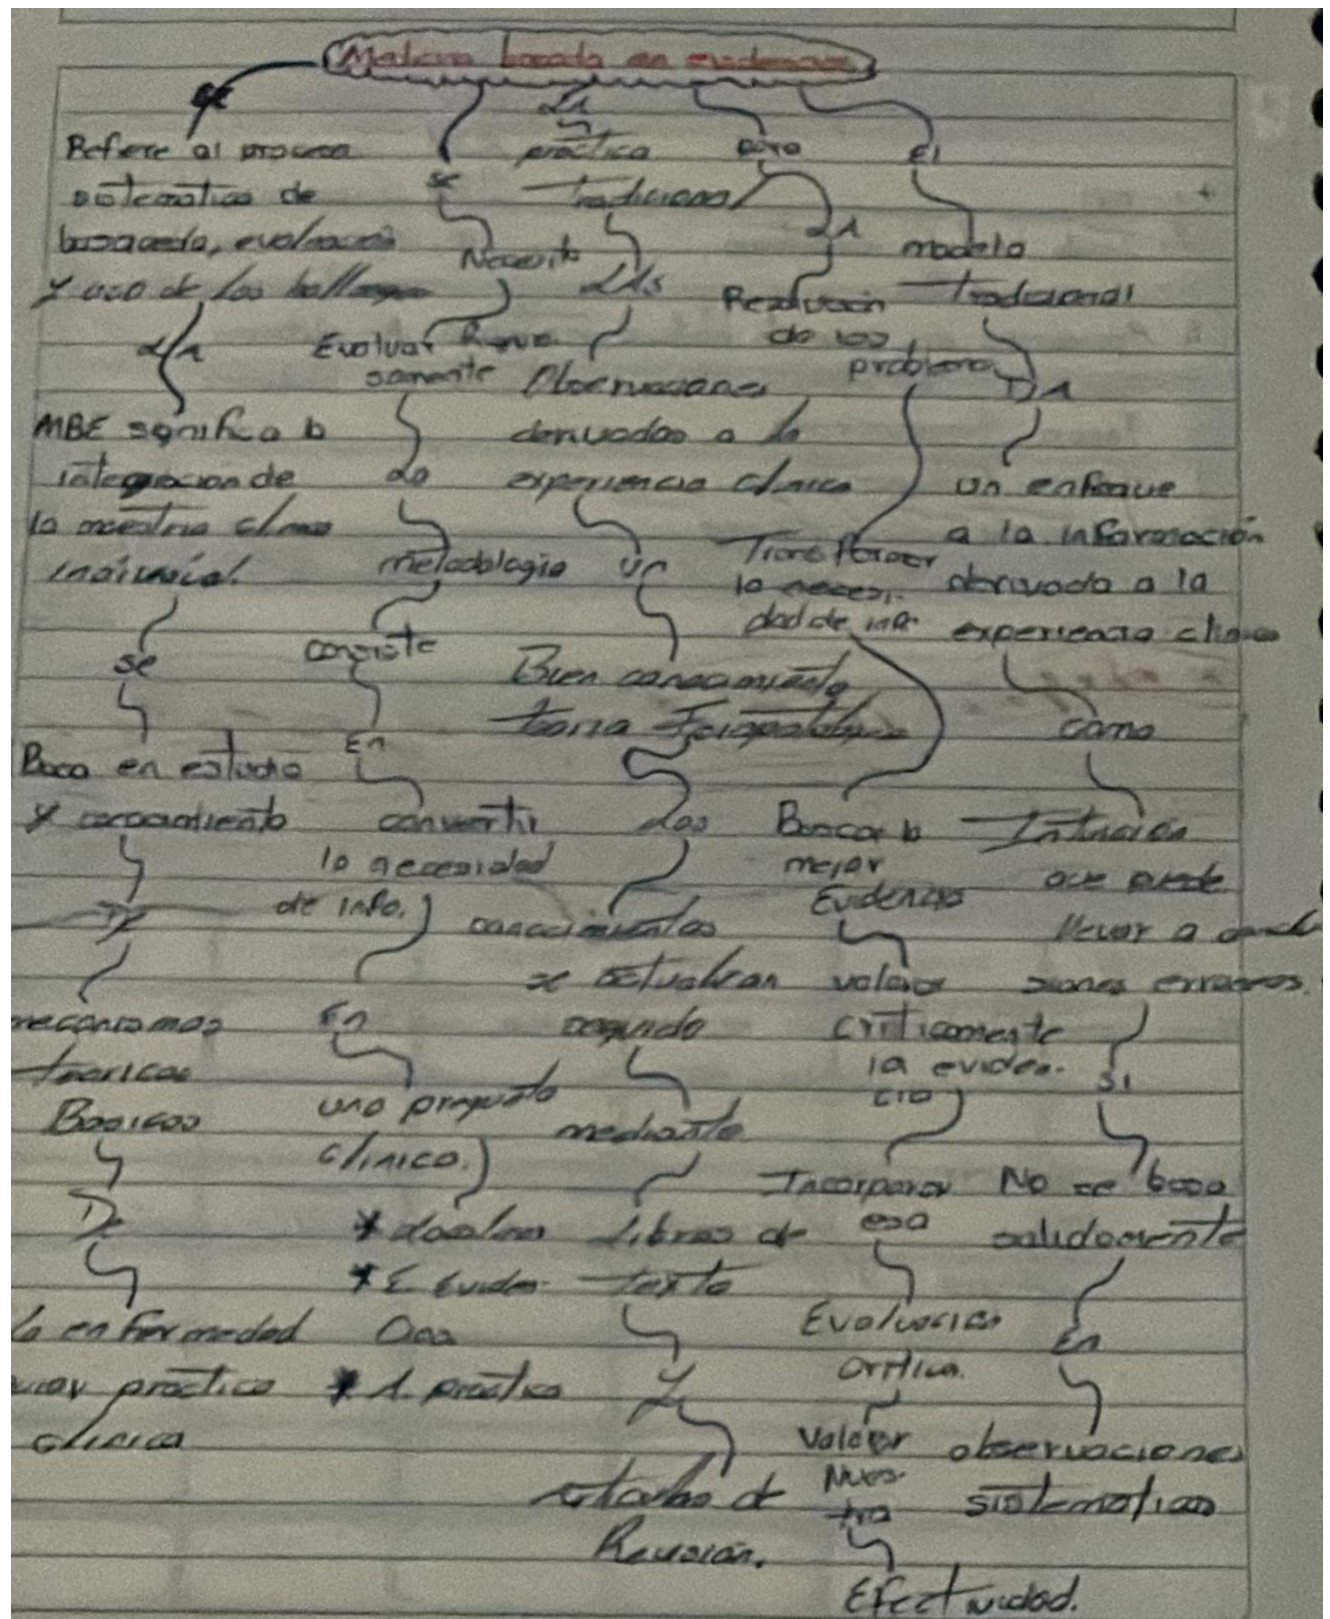 Medicina basada en evidencias
se
Refiere al proceso
sistemático de
busqueda, evaluación
y uso de los hallazgos
LA
MBE significa la
integracion de
la maestria clinica
individual.
se
Basa en estudio
y conocimiento
De
mecanismos
teoricos
Basicos
De
La enfermedad
practica
clinica
se
Necesita
Evaluar Riguro
samente
La
metodologia
consiste
En
convertir
la necesidad
de info.
En
una pregunta
clinica.
*
* E. Eviden-
cias
* A. practica
LA
práctica
Tradicional
LAs
Observaciones
derivadas a la
experiencia clinica
Un
Buen conocimiento
teoria Fisiopatologica
Los
conocimientos
se actualizan
seguido
mediante
Libros de
texto
Y
articulos de
Revisión.
para
LA
Resolución
de los
problema
Transformar
la necesi-
dad de info
Buscar la
mejar
Evidencia
valorar
críticamente
la eviden-
cia
Incorporar
esa
Evaluacion
critica.
Valorar
Nues-
tra
Efectividad.
El
modelo
Tradicional
DA
un enfoque
a la información
derivada a la
experiencia clinica
como
Intuición
que puede
llevar a conclu
siones erroneas.
si
No se basa
validamente
En
observaciones
sistematicas